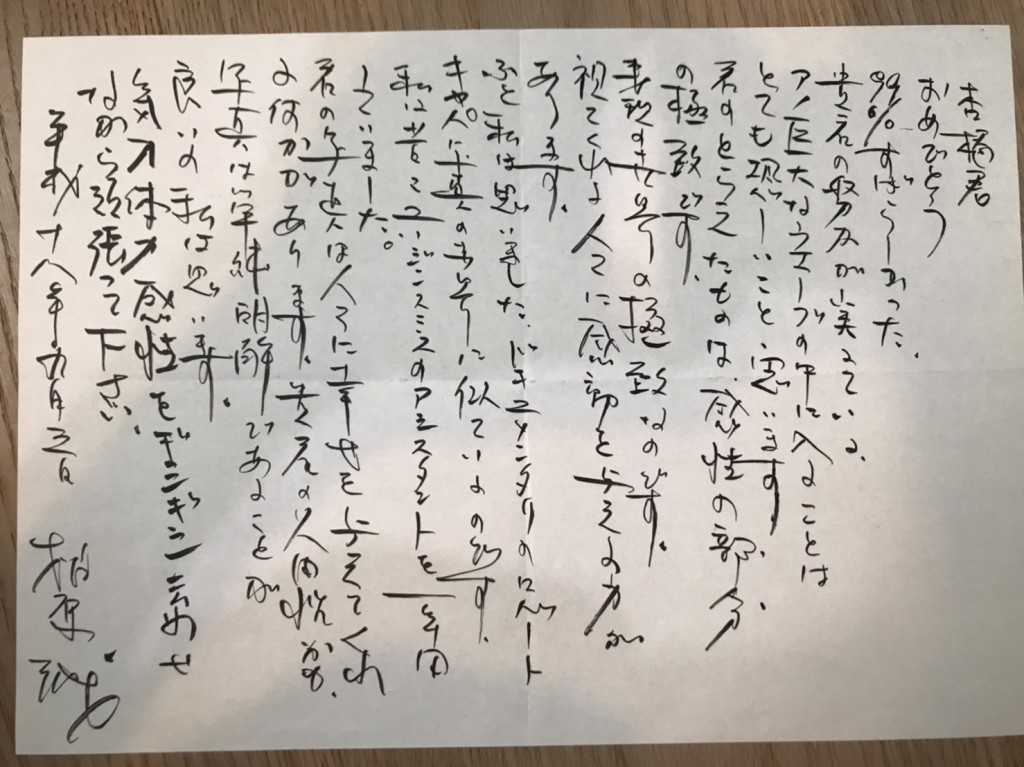 杏橘君
おめでとう
99%すばらしかった。
貴君の努力が実っている。
アノ巨大なウエーブの中に入ることは
とても恐しいことと思います。
君のとらえたものは、感性の部分
の極致です。
表現の世界の極致なのです。
視てくれる人々に感動を与える力が
あります。
ふと私は思いました、ドキュメンタリのロバート
キャパに写真の世界に似ているのです。
私は昔てユージンスミスのアシスタントを一年間
していました。
君の写真は人々に幸せを与えてくれ
る何かがあります。貴君の人間性かも、
写真は単純明解であることが
良いの私は思います。
気力体力感性をギンギンさせ
ながら頑張って下さい、
平成十八年九月三日